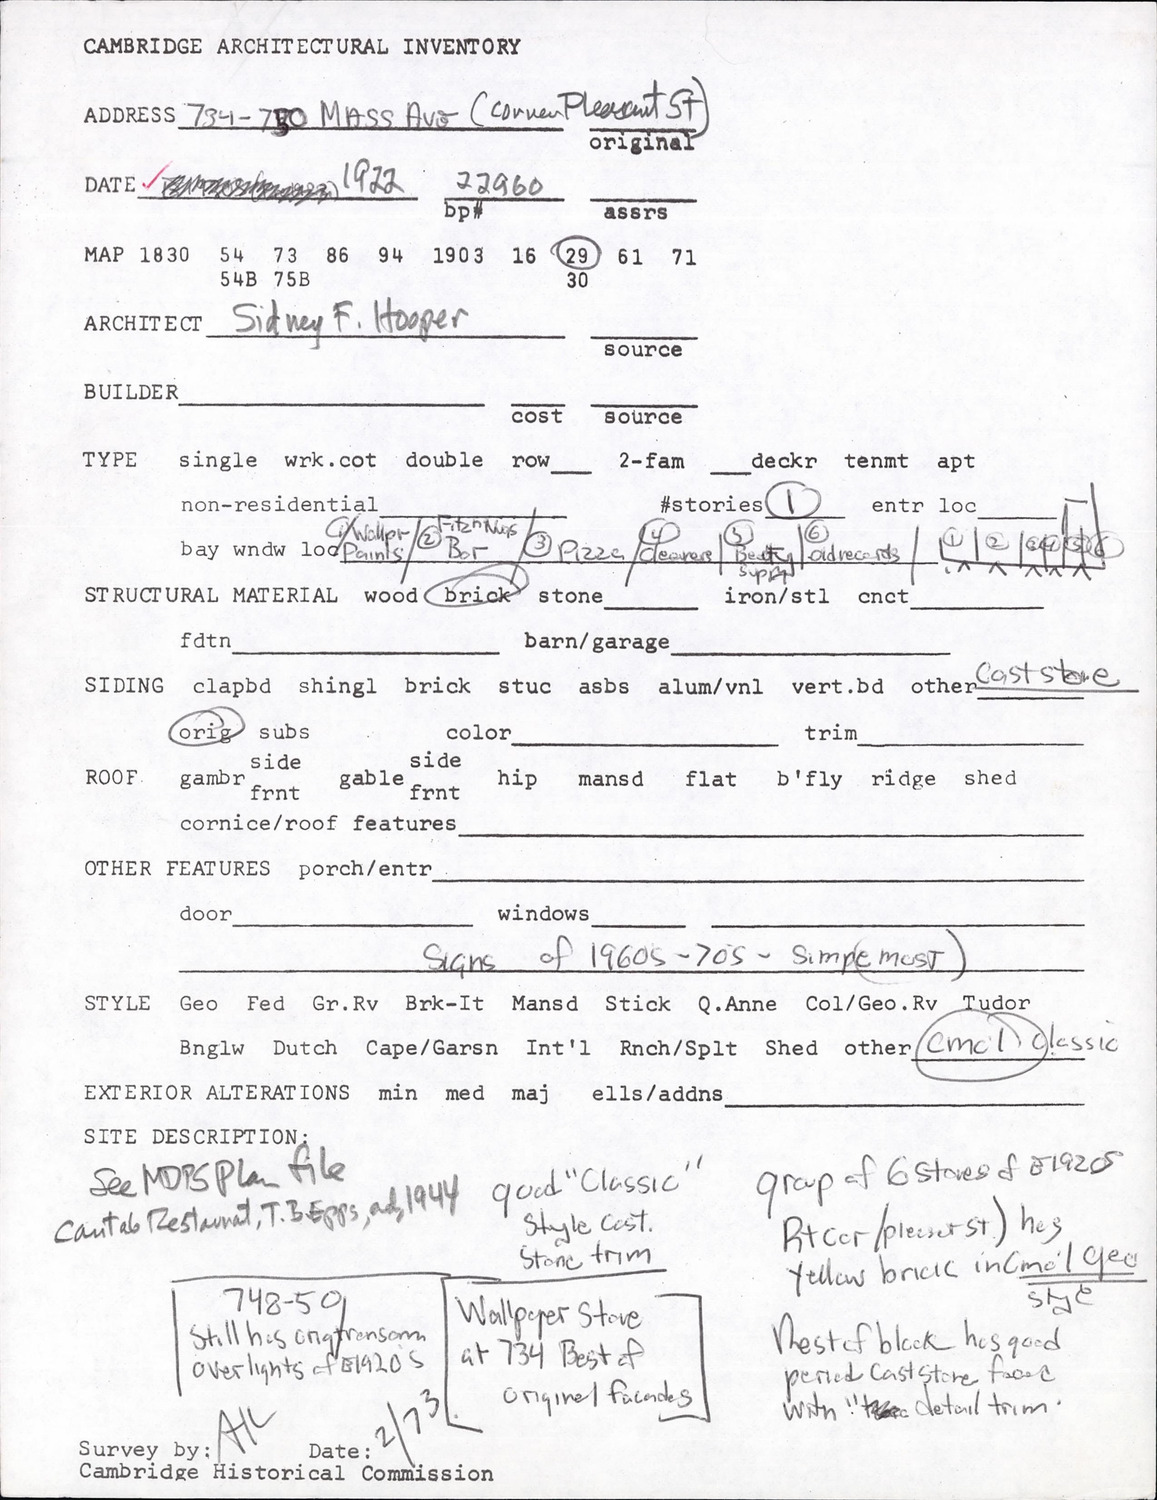 CAMBRIDGE ARCHITECTURAL INVENTORY
ADDRESS 734-750 MASS AVE (corner Pleasant St)
original
DATE 1922 22960
bp# assrs
MAP 1830 54 73 86 94 1903 16 29 61 71
54B 75B 30
ARCHITECT Sidney F. Hooper
source
BUILDER
cost source
TYPE single wrk.cot double row 2-fam deckr tenmt apt
non-residential #stories 1 entr loc
bay wndw loc ① Wallpr Paints / ② Fitz n Nugs Bar / ③ Pizza / ④ Cleaners | ⑤ Beauty Supply | ⑥ old records / ① ②
STRUCTURAL MATERIAL wood brick stone iron/stl cnct
fdtn barn/garage
SIDING clapbd shingl brick stuc asbs alum/vnl vert.bd other Cast stone
orig subs color trim
side side
ROOF gambr gable hip mansd flat b'fly ridge shed
frnt frnt
cornice/roof features
OTHER FEATURES porch/entr
door windows
Signs of 1960s-70s - simple (most)
STYLE Geo Fed Gr.Rv Brk-It Mansd Stick Q.Anne Col/Geo.Rv Tudor
Bnglw Dutch Cape/Garsn Int'l Rnch/Splt Shed other Cmc'l Classic
EXTERIOR ALTERATIONS min med maj ells/addns
SITE DESCRIPTION:
See MDPS Plan file
Cantab Restaurant, T.B. Epps, ad, 1944
good "Classic"
Style cast.
stone trim
group of 6 stores of E1920s
Rt cor (pleasant st.) has
yellow brick in Cmc'l Geo
style
748-50
still has orig transom
overlights of E1920's
Wallpaper Store
at 734 Best of
original facades
Rest of block has good
period cast stone facade
with detail trim.
Survey by: Date: 2/73
Cambridge Historical Commission